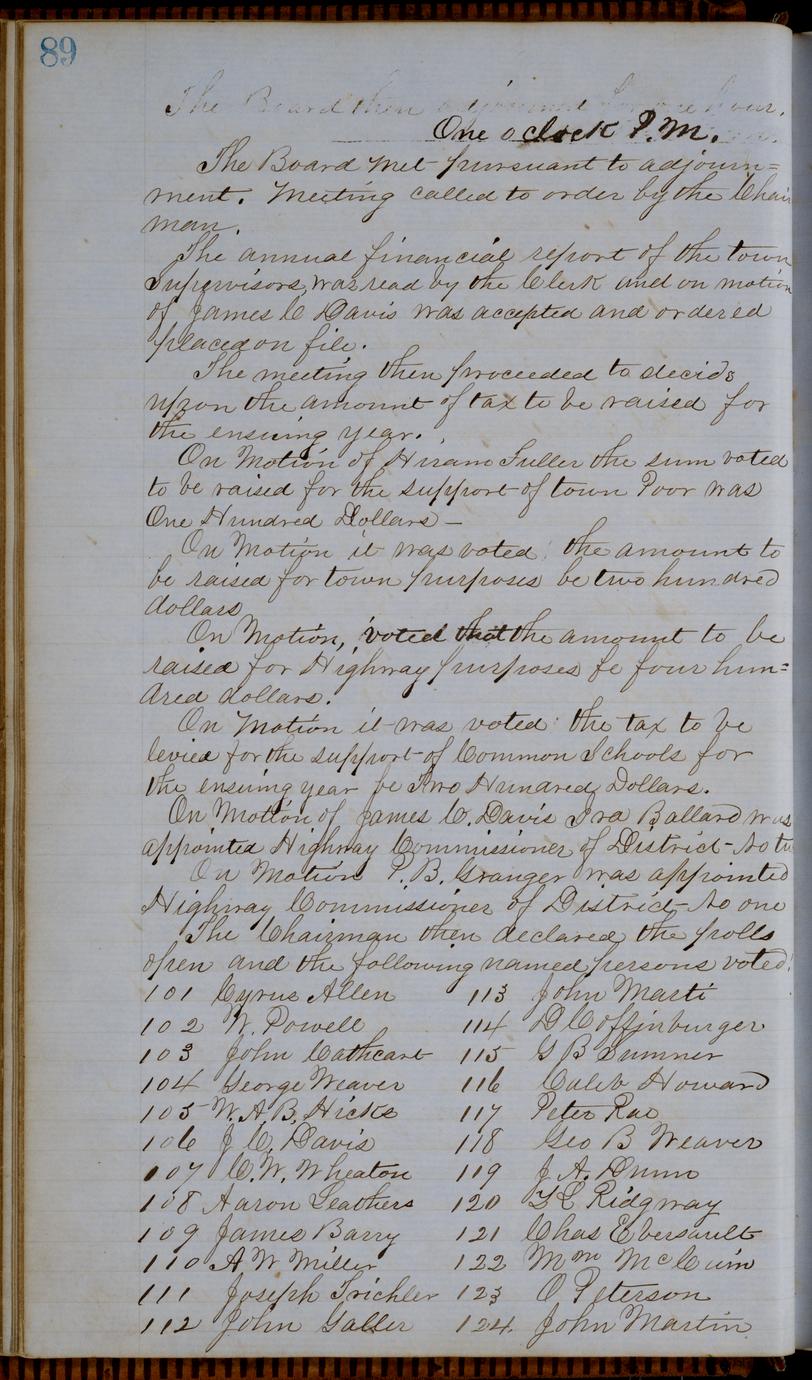 89
The Board then adjourned for one hour.
One o clock P.M.
The Board met pursuant to adjourn=
ment. Meeting called to order by the Chair
man.
The annual financial report of the town
Supervisors, was read by the Clerk and on motion
of James C Davis was accepted and ordered
placed on file.
The meeting then proceeded to decide
upon the amount of tax to be raised for
the ensuing year.
On Motion of Hiram Fuller the sum voted
to be raised for the support of town Poor was
One Hundred Dollars –
On Motion it was voted the amount to
be raised for town purposes be two hundred
dollars
On Motion, voted that the amount to be
raised for Highway purposes be four hun=
dred dollars.
On Motion it was voted the tax to be
levied for the support of Common Schools for
the ensuing year be Two Hundred Dollars.
On Motion of James C. Davis Ira Ballard was
appointed Highway Commissioner of District No
On Motion P. B. Granger was appointed
Highway Commissioner of District No one
The Chairman then declared the polls
open and the following named persons voted.
101 Cyrus Allen 113 John Marti
102 W. Powell 114 D Coffinburger
103 John Cathcart 115 G B Sumner
104 George Weaver 116 Caleb Howard
105 W. A. B. Hicks 117 Peter Rae
106 J C. Davis 118 Geo B Weaver
107 C. W. Wheaton 119 J A. Dunn
108 Aaron Leathers 120 Ridgway
109 James Barry 121 Chas Ebersault
110 A W Miller 122 Wm
111 Joseph Trichler 123 O Peterson
112 John Galler 124 John Martin